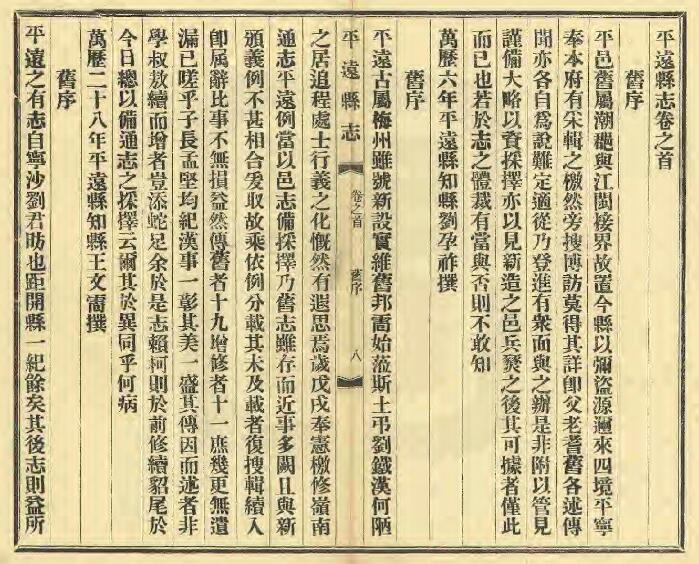 平遠縣志卷之首
舊序
平邑舊屬潮郡與江閩接界故置今縣以彌盜源邇來四境平寧
奉本府有宋輯之檄然旁搜博訪莫得其詳即父老耆舊各述傳
聞亦各自為說難定適從乃登進有衆面與之辦是非附以管見
謹備大略以資採擇亦以見新造之邑兵燹之後其可據者僅此
而已也若於志之體裁有當與否則不敢知
萬歷六年平遠縣知縣劉孕祚撰
舊序
平遠古屬梅州雖號新設實維舊邦需始蒞斯土弔劉鐵漢何陋
平遠縣志
卷之首
舊序
八
之居追程處士行義之化慨然有遐思焉歲戊戌奉憲檄修嶺南
通志平遠例當以邑志備採擇乃舊志雖存而近事多闕且與新
頒義例不甚相合爰取故乘依例分載其未及載者復搜輯續入
即属辭比事不無損益然傳舊者十九增修者十一庶幾更無遺
漏已嗟乎子長孟堅均紀漢事一彰其美一盛其傳因而述者非
學叔敖續而增者豈添蛇足余於是志賴柯則於前修續貂尾於
今日總以備通志之採擇云爾其於異同乎何病
萬歷二十八年平遠縣知縣王文需撰
舊序
平遠之有志自寧沙劉君昉也距開縣一紀餘矣其後志則益所